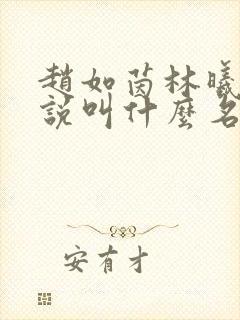 趙如茵林曦
說叫什麼名
安有才